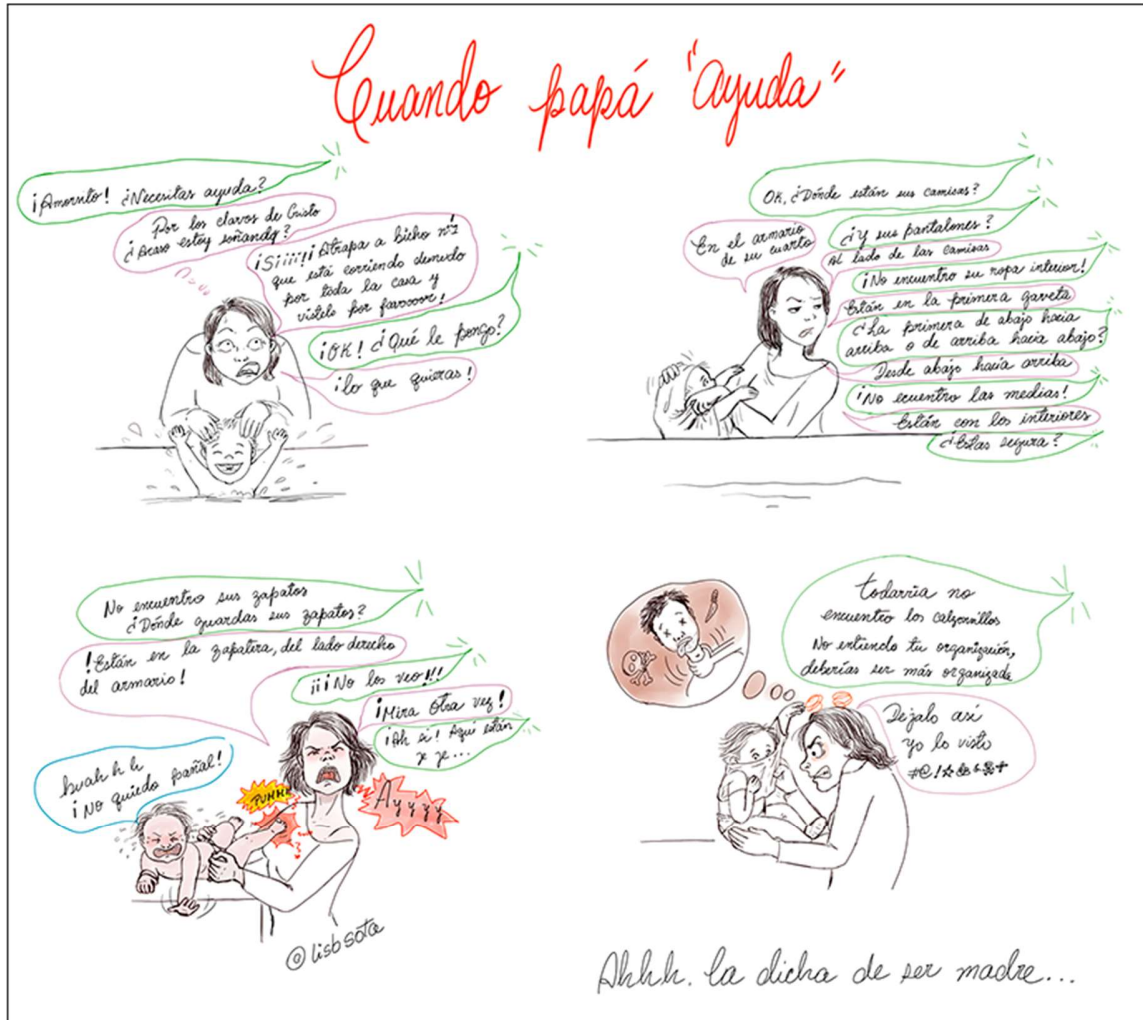 Cuando papá "Ayuda"
¡Amorsito! ¿Necesitas ayuda?
Por los clavos de Cristo
¿Acaso estoy soñando?
¡Siiii!¡Atrapa a bicho nº1
que está corriendo desnudo
por toda la casa y
vístelo por favooor!
¡OK! ¿Qué le pongo?
¡lo que quieras!
OK, ¿Dónde están sus camisas?
En el armario
de su cuarto
¿Y sus pantalones?
Al lado de las camisas
¡No encuentro su ropa interior!
Están en la primera gaveta
¿La primera de abajo hacia
arriba o de arriba hacia abajo?
Desde abajo hacia arriba
¡No ecuentro las medias!
Están con los interiores
¿Estas segura?
No encuentro sus zapatos
¿Dónde guardas sus zapatos?
!Están en la zapatera, del lado derecho
del armario!
¡¡¡No los veo!!!
¡Mira otra vez!
¡Ah si! Aquí están
je je...
buah h h
¡No quiedo pañal!
PUMMM
Ayyyy
@lisbsota
todavvía no
encuentro los calzonnillos
No entiendo tu organización,
deberías ser más organizada
Dejalo así
yo lo visto
#@!☆&
Ahhh. la dicha de ser madre...